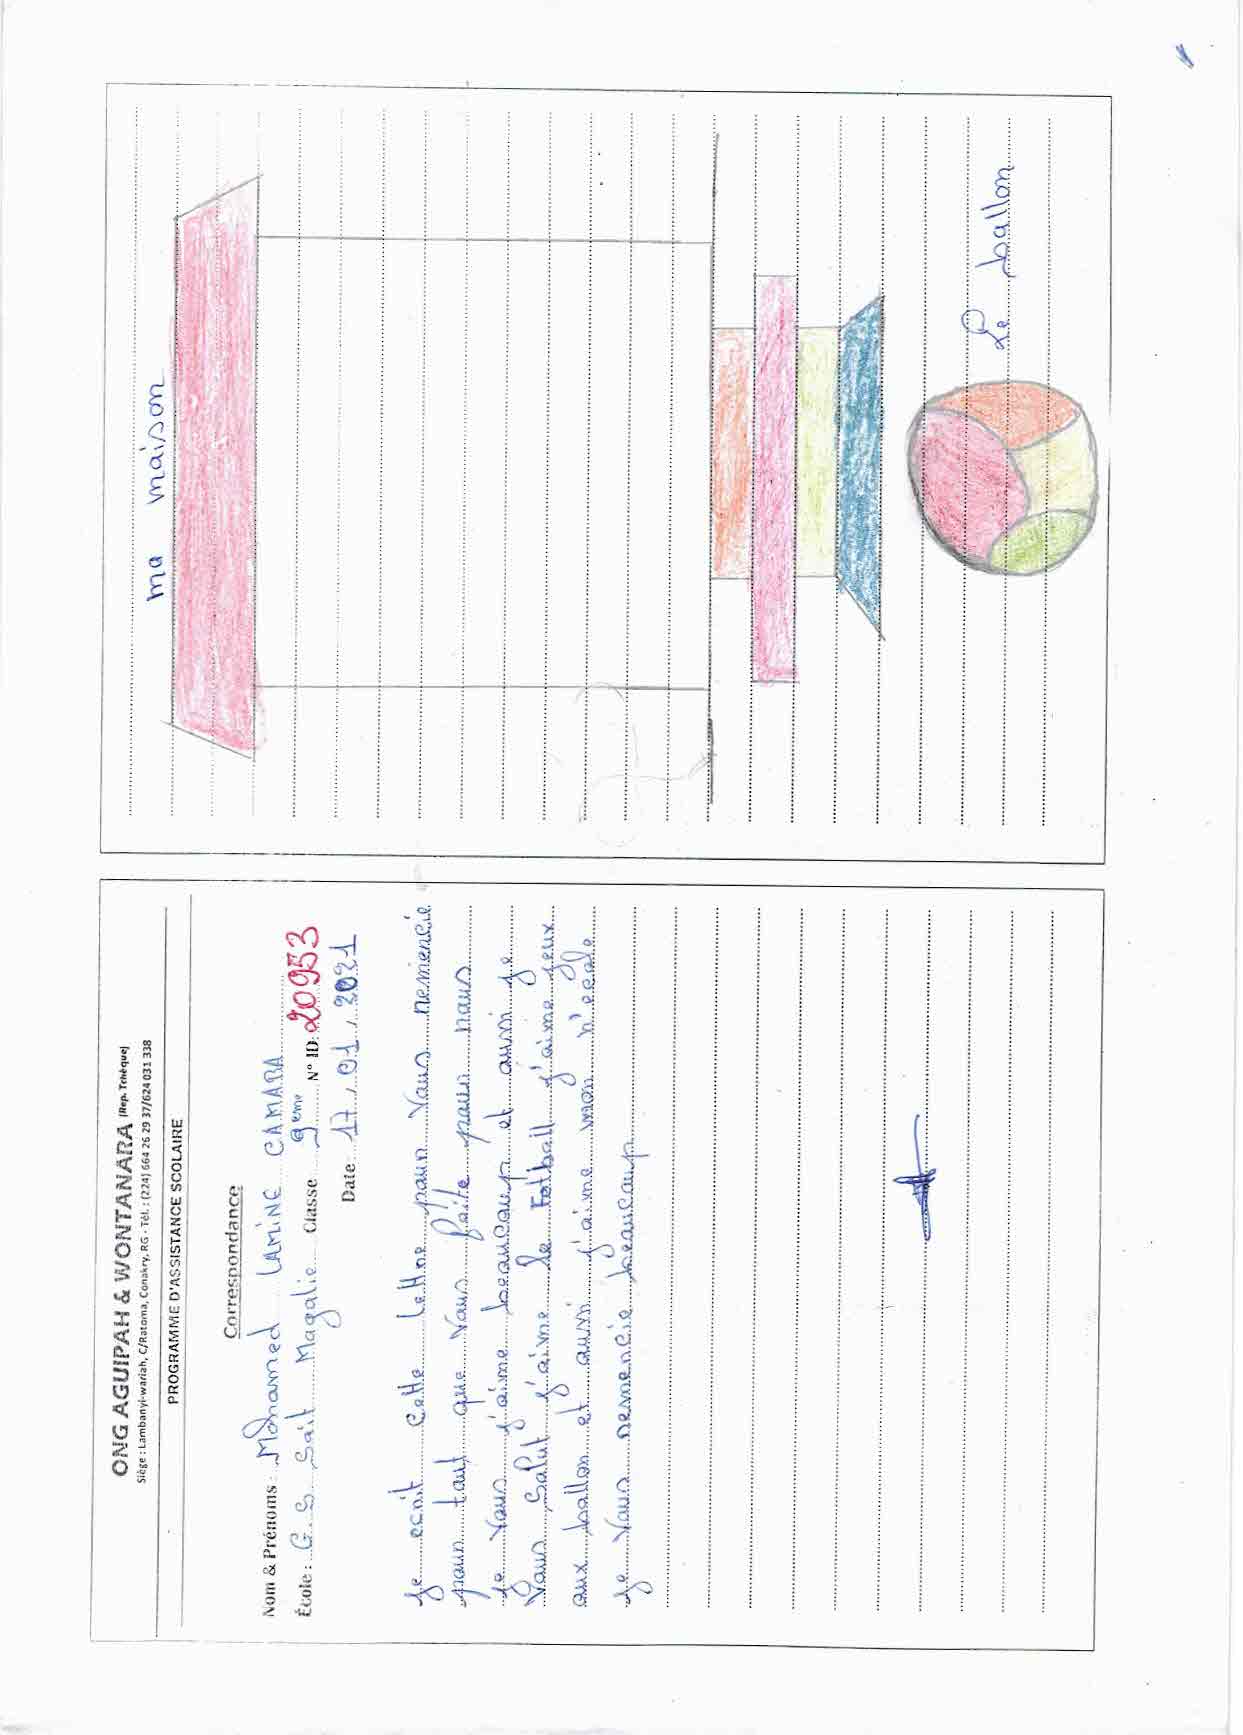 ONG AGUIPAH & WONTANARA (Rep. Tchèque)
Siège : Lambanyi-wariah, C/Ratoma, Conakry, RG - Tél. : (224) 664 26 29 37/624 031 338
PROGRAMME D'ASSISTANCE SCOLAIRE
Correspondance
Nom & Prénoms : Mohamed LAMINE CAMARA
École : G S Sait Magalie Classe 9ème N° ID: 20953
Date 17 / 01 / 2021
je ecrit cette lettre pour vous remercié
pour tout que vous faite pour nous
je vous j'aime beaucoup et aussi je
vous salut j'aime le Fotball j'aime jeux
aux ballon et aussi j'aime mon n'ecole
je vous remercie beaucoup
ma maison
Le ballon